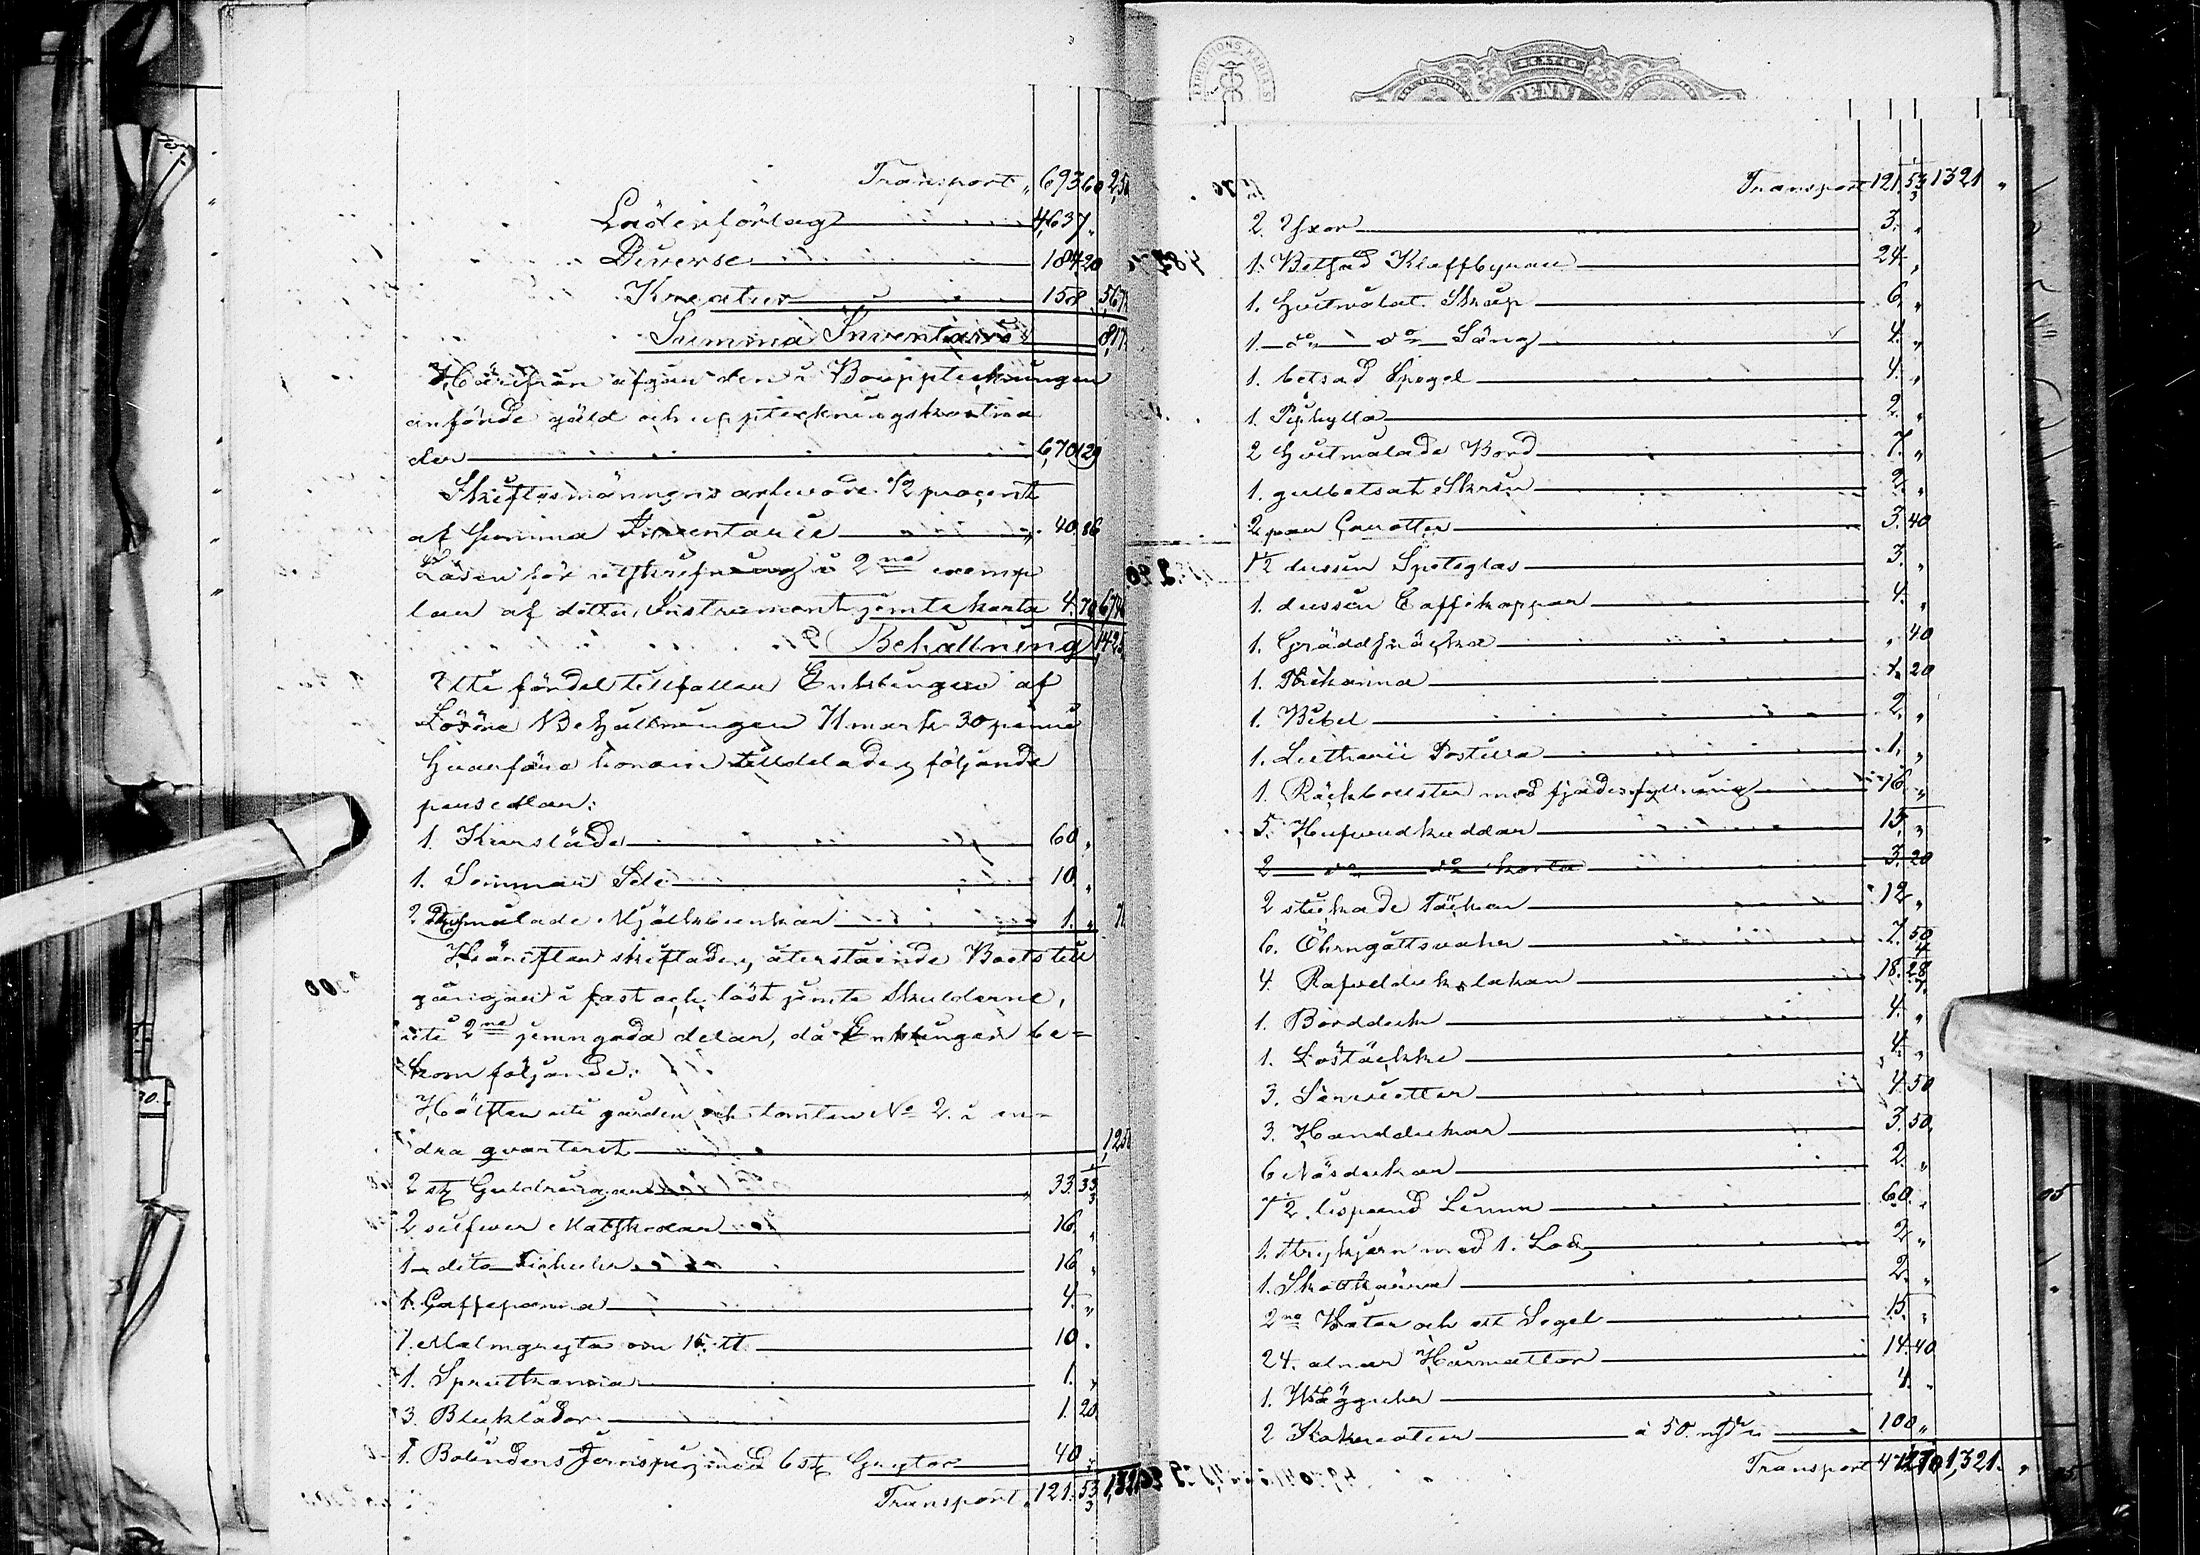 Transport „ 693 60 2,5
Läderförlag 4,637 „
Diverse 184 20
Kreatur 158 „ 5,67
Summa Inventarie 8,17
Härifrån afgår den i Bouppteckningen
anförde gäld och uppteckningskostna
der 6,701 29
Skiftesmännens arfvode 1/2 procent
af Summa Inventarie „ 40 86
Lösen för utskrifning i 2ne exemp
lar af detta Instrument jemte karta 4. 70 6,74
Behållning 1,42
Utti fördel tillfaller Enklingen af
Lösöre Behållningen 71 mark 30 penni
hvarföre honom tilldelades följande
persedlar:
1. Kursläde 60 „
1. Sommar Sele 10 „
2. målade Mjölkbunkar 1. „ 7
Härefter skiftades återstående Boets till
gångar i fast och löst jemte skulderne,
uti 2ne jemngoda delar, då Enklingen be=
kom följande:
Hälften uti gården och tomten No 2. i an=
dra qvarteret 1,25
2 st Guldringar „ 33. 33
2 silfver Matskedar 16. „
1 dito 16 „
1. Caffepanna 4. „
1. Malmgryta om 15 tt 10 „
1. Sprutkanna 1. „
3. Bleklådor 1. 20
1. Bolinders Jernspis med 6 st Grytor 40 „
Transport „ 121. 53 1,321
EXPEDITIONS KARTA
PENNI
Transport 121. 53 1321 „
2. Yxor 3. „
1. Betsad Klaffbyrau 24 „
1. Hvitmålat Skåp 6 „
1. do do Säng 4. „
1. betsad Spegel 4. „
1. Piphylla 2. „
2 Hvitmålade Bord 7. „
1. gulbetsat Skrin 2. „
2 par Caratter 3. 40
1/2 dussin Spetsglas 3. „
1. dussin Caffekoppar 4. „
1. Gräddsnäcka „ 40
1. Thekanna 1. 20
1. Bibel 2. „
1. Lutherii Postilla 1. „
1. Räckbolster med fjäderfyllning 16 „
5. Hufvudkuddar 15 „
2 do do korta 3. 20
2 stickade Täcken 12 „
6. Öhrngåttsvaher 7. 50
4. Rafvelduks lakan 18. 28
1. Bordduk 4. „
1. Löstäcke 4. „
3. Servietter 4. 50
3. Handdukar 3. 50
6 Näsdukar 2. „
1/2 lispund Linne 60 „
1. Strykjern med 1. Lod 2 „
1. Skottkärra 2. „
2ne Båtar och ett Segel 15 „
24. alnar Hårmattor 14. 40
1. Väggur 4. „
2 Kokreatur à 50. 100 „
Transport 1,321. „